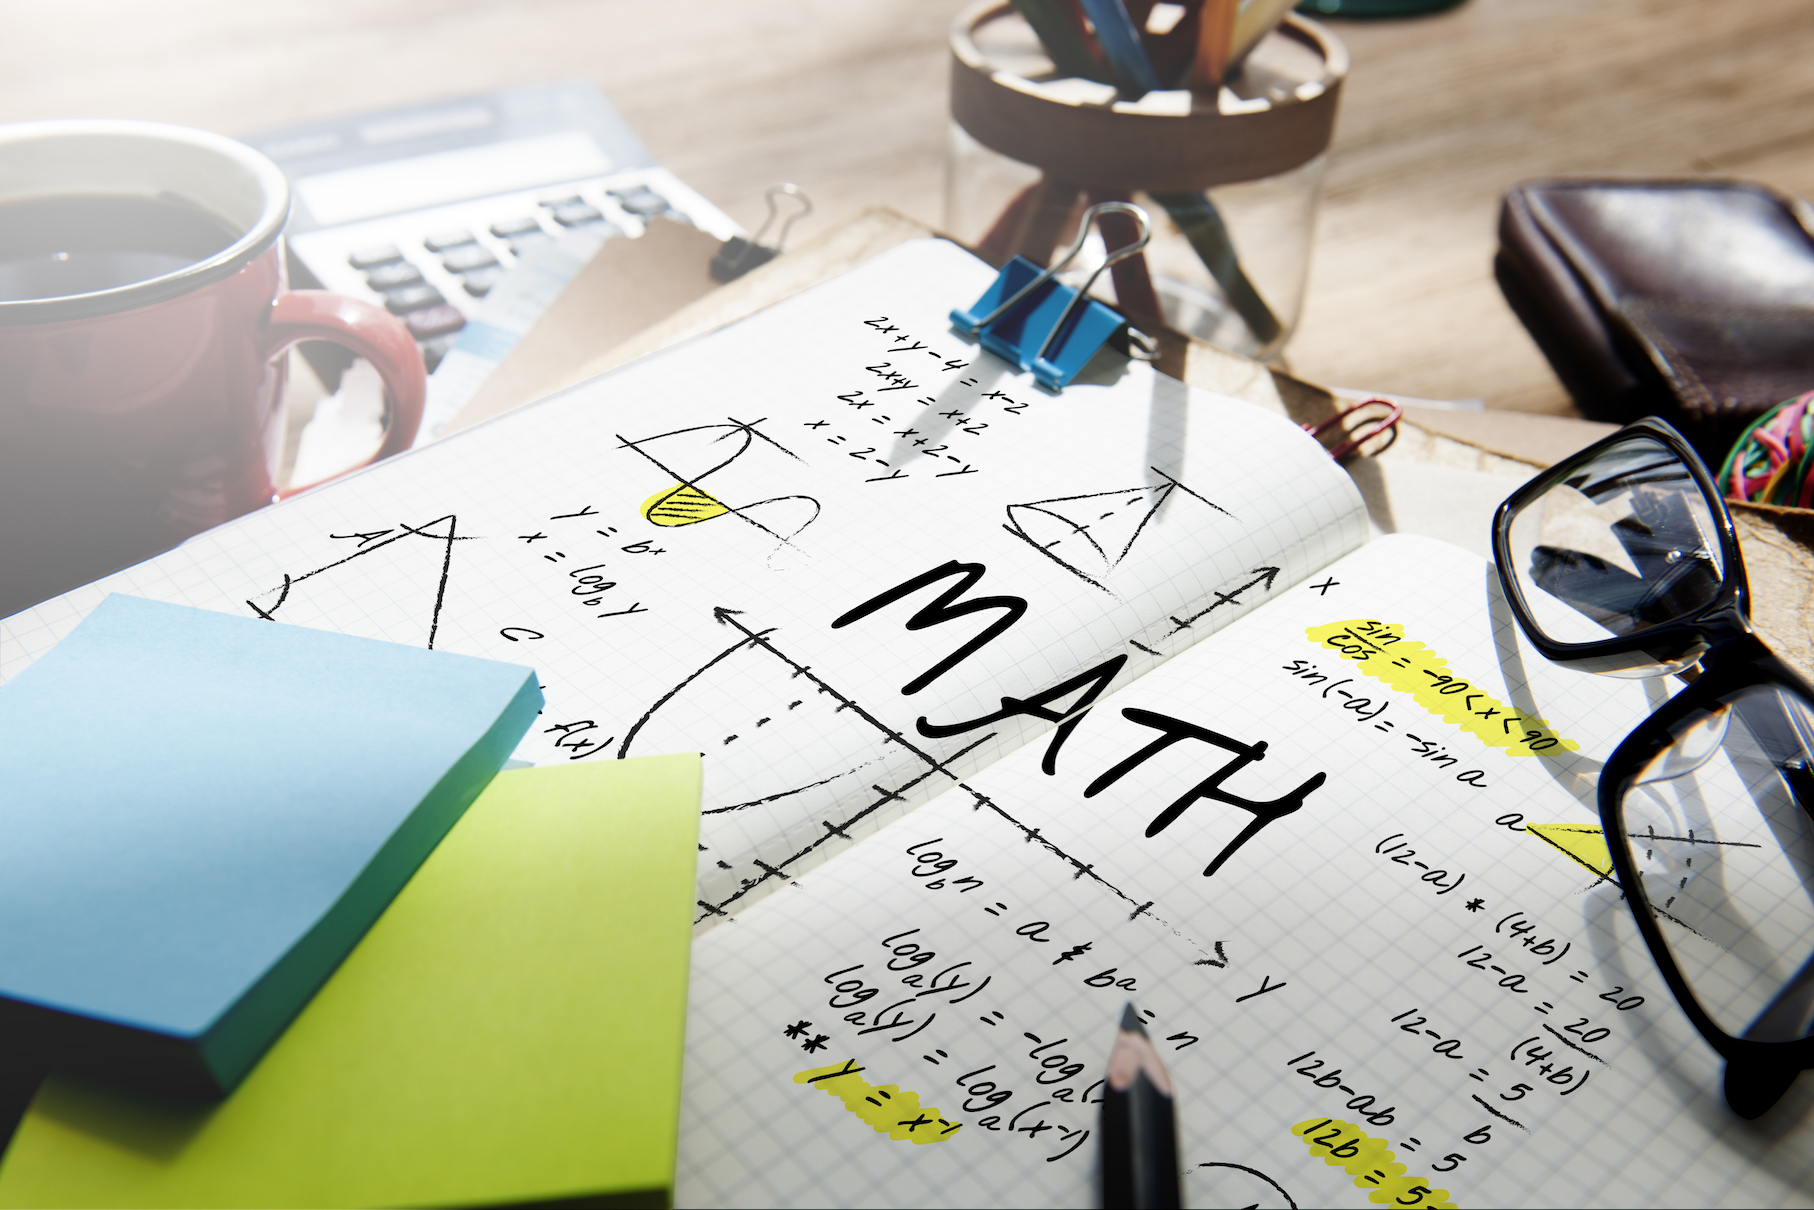 2x+y-4 = x-2
2x+y = x+2
2x = x+2-y
x = 2-y
y = bˣ
x = log_b y
A
C
f(x)
MATH
x
y
sin/cos = -90<x<90
sin(-a) = -sin a
a
(12-a) * (4+b) = 20
12-a = 20/(4+b)
12-a = 5/b
12b-ab = 5
12b = 5-
log_b n = a & ba = n
log_a(y) = -log_a(
log_a(y) = log_a(x⁻¹)
** y = x⁻¹